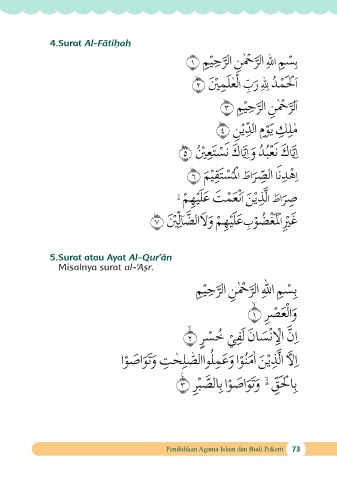 4.Surat Al-Fātiḥah
بِسْمِ اللهِ الرَّحْمٰنِ الرَّحِيْمِ ﴿١﴾
اَلْحَمْدُ لِلهِ رَبِّ الْعٰلَمِيْنَ ﴿٢﴾
الرَّحْمٰنِ الرَّحِيْمِ ﴿٣﴾
مٰلِكِ يَوْمِ الدِّيْنِ ﴿٤﴾
اِيَّاكَ نَعْبُدُ وَاِيَّاكَ نَسْتَعِيْنُ ﴿٥﴾
اِهْدِنَا الصِّرَاطَ الْمُسْتَقِيْمَ ﴿٦﴾
صِرَاطَ الَّذِيْنَ اَنْعَمْتَ عَلَيْهِمْ ۙ
غَيْرِ الْمَغْضُوْبِ عَلَيْهِمْ وَلَا الضَّاۤلِّيْنَ ﴿٧﴾
5.Surat atau Ayat Al-Qur'ān
Misalnya surat al-'Aṣr.
بِسْمِ اللهِ الرَّحْمٰنِ الرَّحِيْمِ
وَالْعَصْرِ ۙ﴿١﴾
اِنَّ الْاِنْسَانَ لَفِيْ خُسْرٍ ۙ﴿٢﴾
اِلَّا الَّذِيْنَ اٰمَنُوْا وَعَمِلُوا الصّٰلِحٰتِ وَتَوَاصَوْا
بِالْحَقِّ ۙ وَتَوَاصَوْا بِالصَّبْرِ ۙ﴿٣﴾
Pendidikan Agama Islam dan Budi Pekerti 73